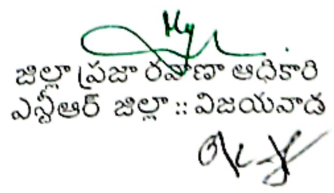 జిల్లా ప్రజా రవాణా ఆధికారి
ఎన్టీఆర్ జిల్లా :: విజయవాడ